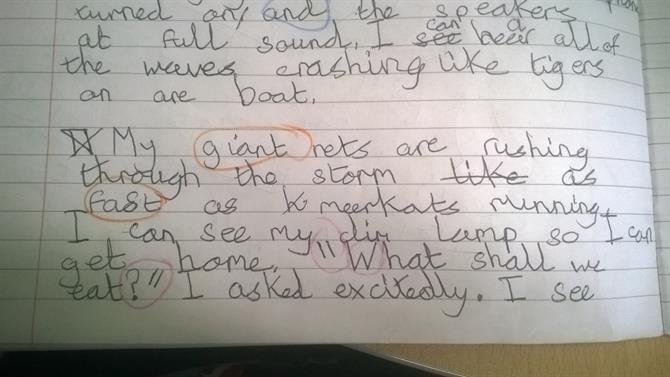 turned on, and the speakers
at full sound. I can see hear all of
the waves crashing like tigers
on are boat.
My giant nets are rushing
through the storm like as
fast as meerkats running.
I can see my dim lamp so I can
get home. "What shall we
eat?" I asked excitedly. I see